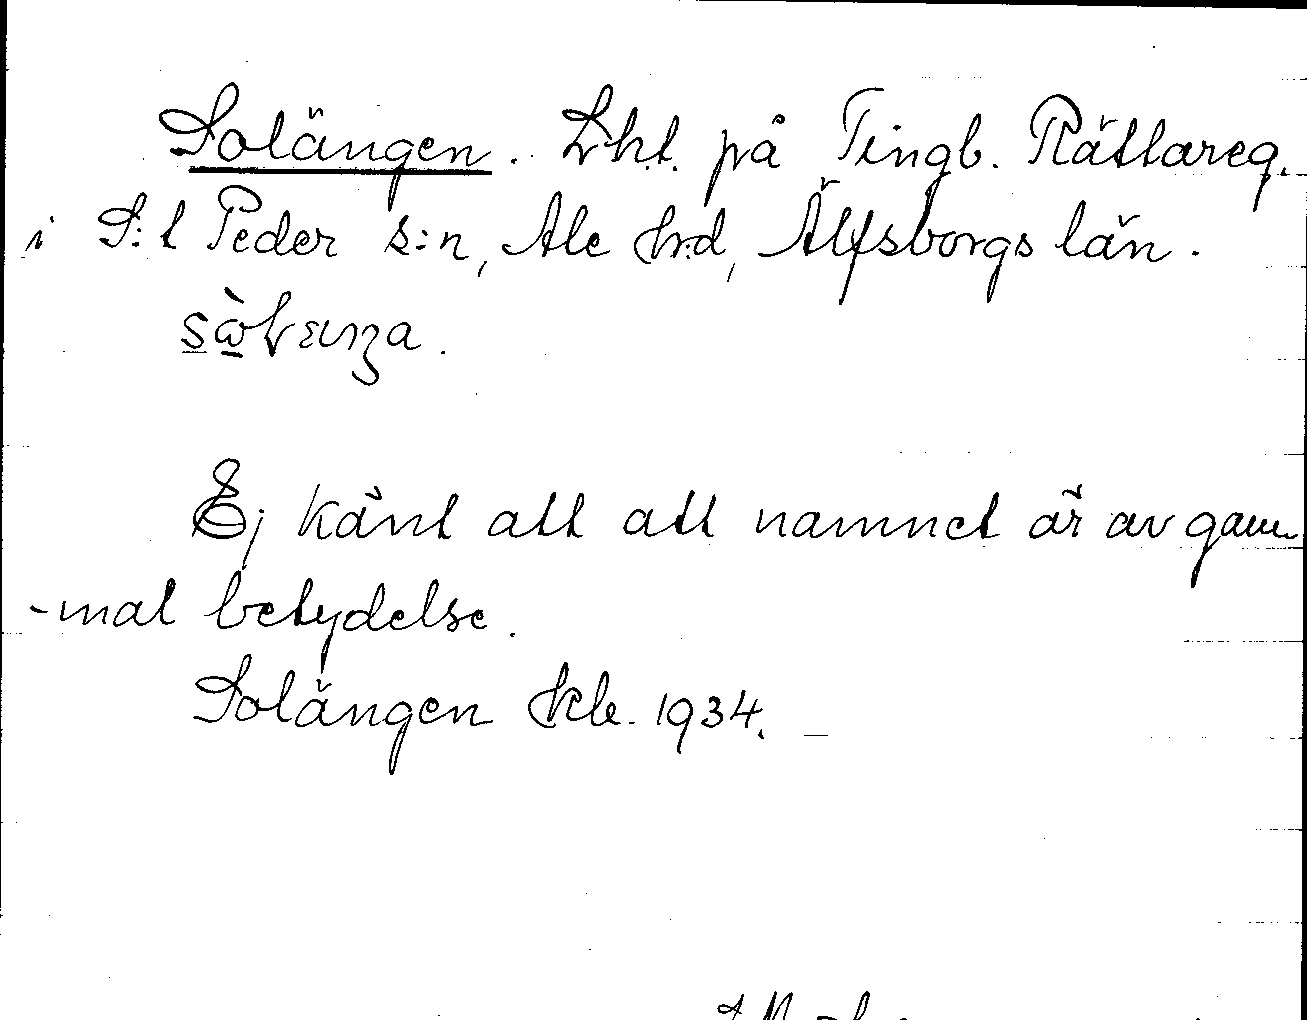 Solängen. Lht. på Tingb. Rättareg.
i S:t Peder s:n, Ale hrd, Älfsborgs län.
Ej känt att att namnet är av gam-
-mal betydelse.
Solängen Kk. 1934.